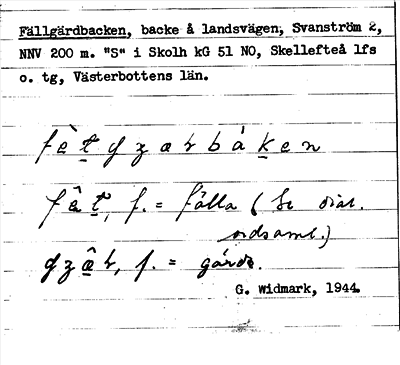 Fällgärdbacken, backe å landsvägen, Svanström 2,
NNV 200 m. "S" i Skolh kG 51 NO, Skellefteå lfs
o. tg, Västerbottens län.
fèṯ gzarbàḵen
fêṯ, f. = fälla (Se dial.
ordsaml.)
gzæ̂r, f. = gärde.
G. Widmark, 1944.